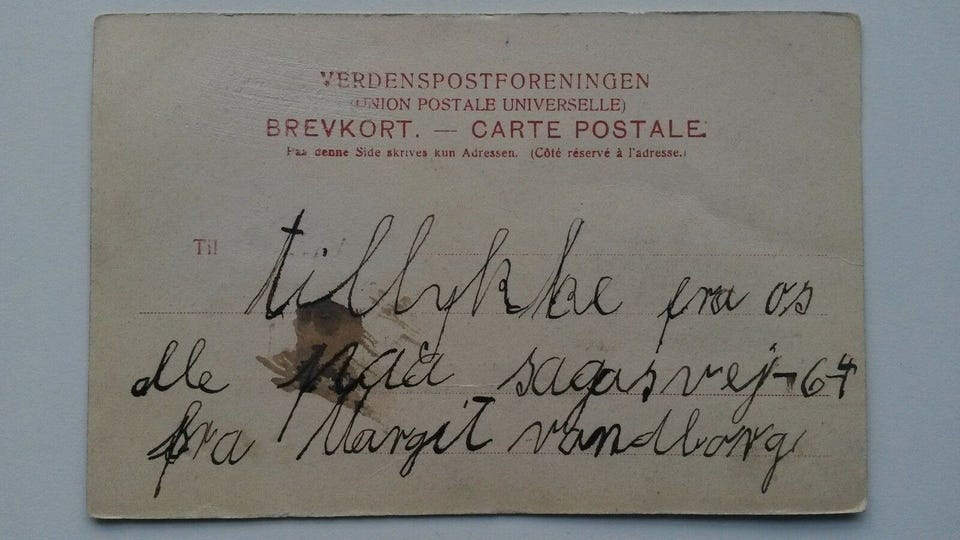 VERDENSPOSTFORENINGEN
(UNION POSTALE UNIVERSELLE)
BREVKORT. — CARTE POSTALE.
Paa denne Side skrives kun Adressen. (Côté réservé à l'adresse.)
Til
tillykke fra os
alle paa sagasvej 64
fra Margit vandborg